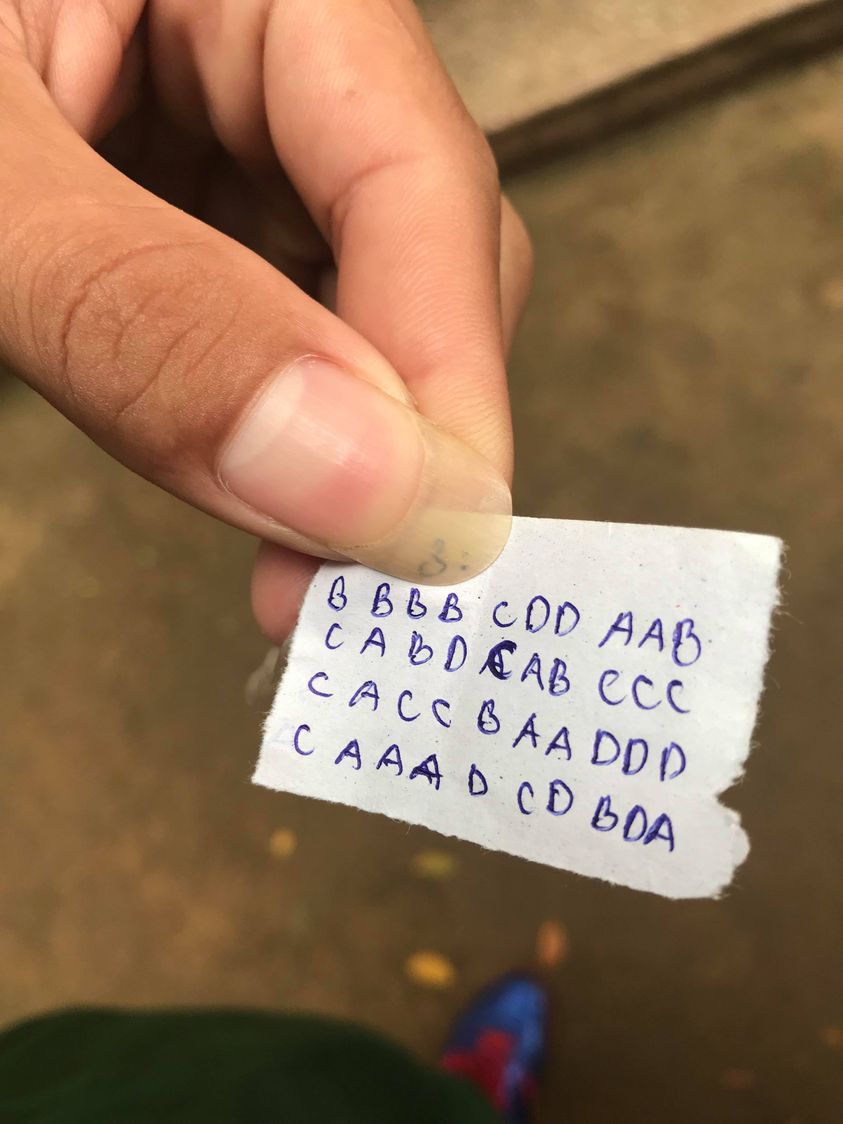 3:
B B B B C D D A A B
C A B D C A B C C C
C A C C B A A D D D
C A A A D C D B D A